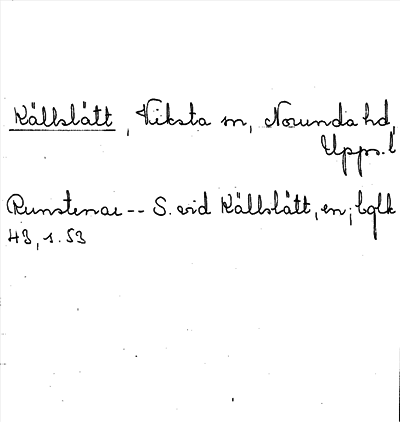 Källslätt, Viksta sn, Norunda hd,
Upps. l
Runstenar -- S. vid Källslätt, en;
43, s. 53